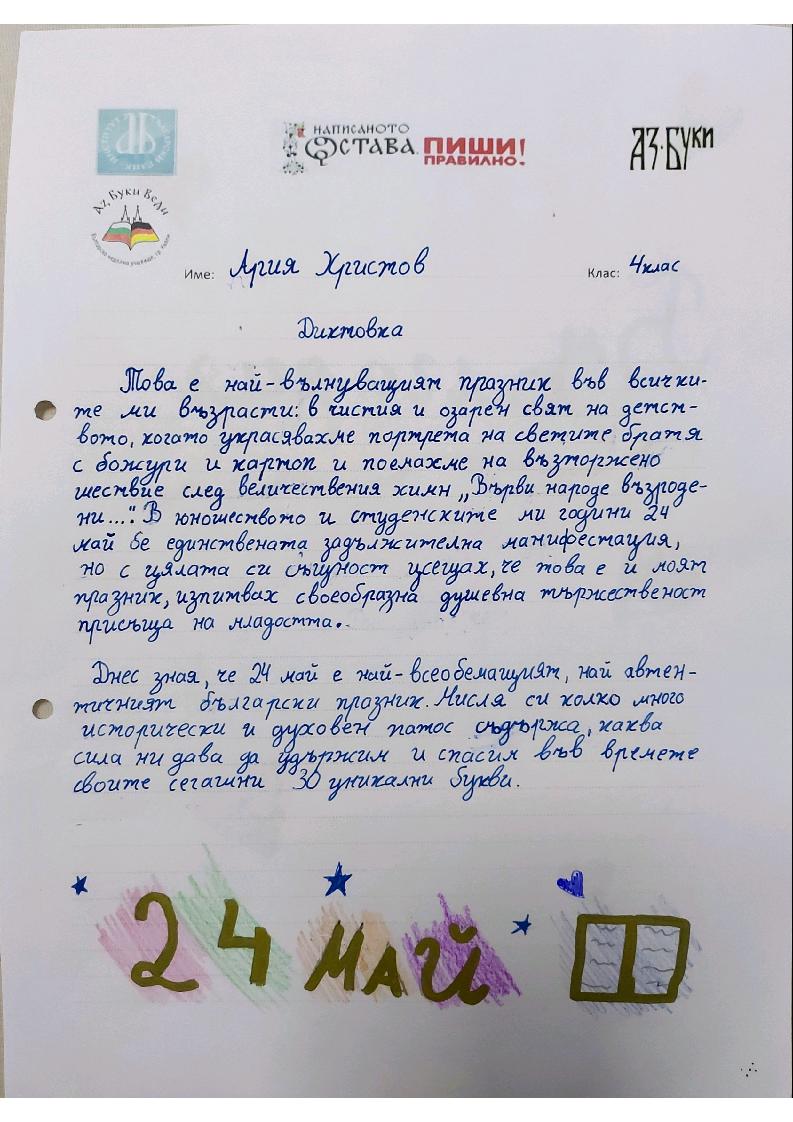 НАПИСАНОТО
ОСТАВА. ПИШИ!
ПРАВИЛНО!
АЗ·БУКИ
Аз, Буки Веди
Име: Аргия Христов
Клас: 4клас
Диктовка
Това е най-вълнуващият празник във всички-
те ми възрасти: в чистия и озарен свят на детст-
вото, когато украсявахме портрета на светите братя
с божури и картоп и поемахме на възторжено
шествие след величествения химн „Върви народе възроде-
ни...". В юношеството и студенските ми години 24
май бе единствената задължителна манифестация,
но с цялата си същност усещах, че това е и моят
празник, изпитвах своеобразна душевна тържественост
присъща на младостта.
Днес зная, че 24 май е най-всеобемащият, най автен-
тичният български празник. Мисля си колко много
исторически и духовен патос съдържа, каква
сила ни дава да удържим и спасим във времете
своите сегашни 30 уникални букви.
24 МАЙ